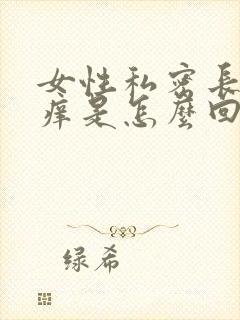 女性私密長
痒是怎麼回
绿希